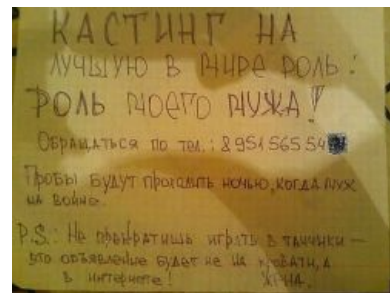 КАСТИНГ НА
ЛУЧШУЮ В МИРЕ РОЛЬ:
РОЛЬ МОЕГО МУЖА!
ОБРАЩАТЬСЯ ПО ТЕЛ.: 8 951 565 54
ПРОБЫ БУДУТ ПРОХОДИТЬ НОЧЬЮ, КОГДА МУЖ
НА ВОЙНЕ.
P.S.: НЕ ПРЕКРАТИШЬ ИГРАТЬ В ТАНЧИКИ —
ЭТО ОБЪЯВЛЕНИЕ БУДЕТ НЕ НА КРОВАТИ, А
В ИНТЕРНЕТЕ! ЖЕНА.